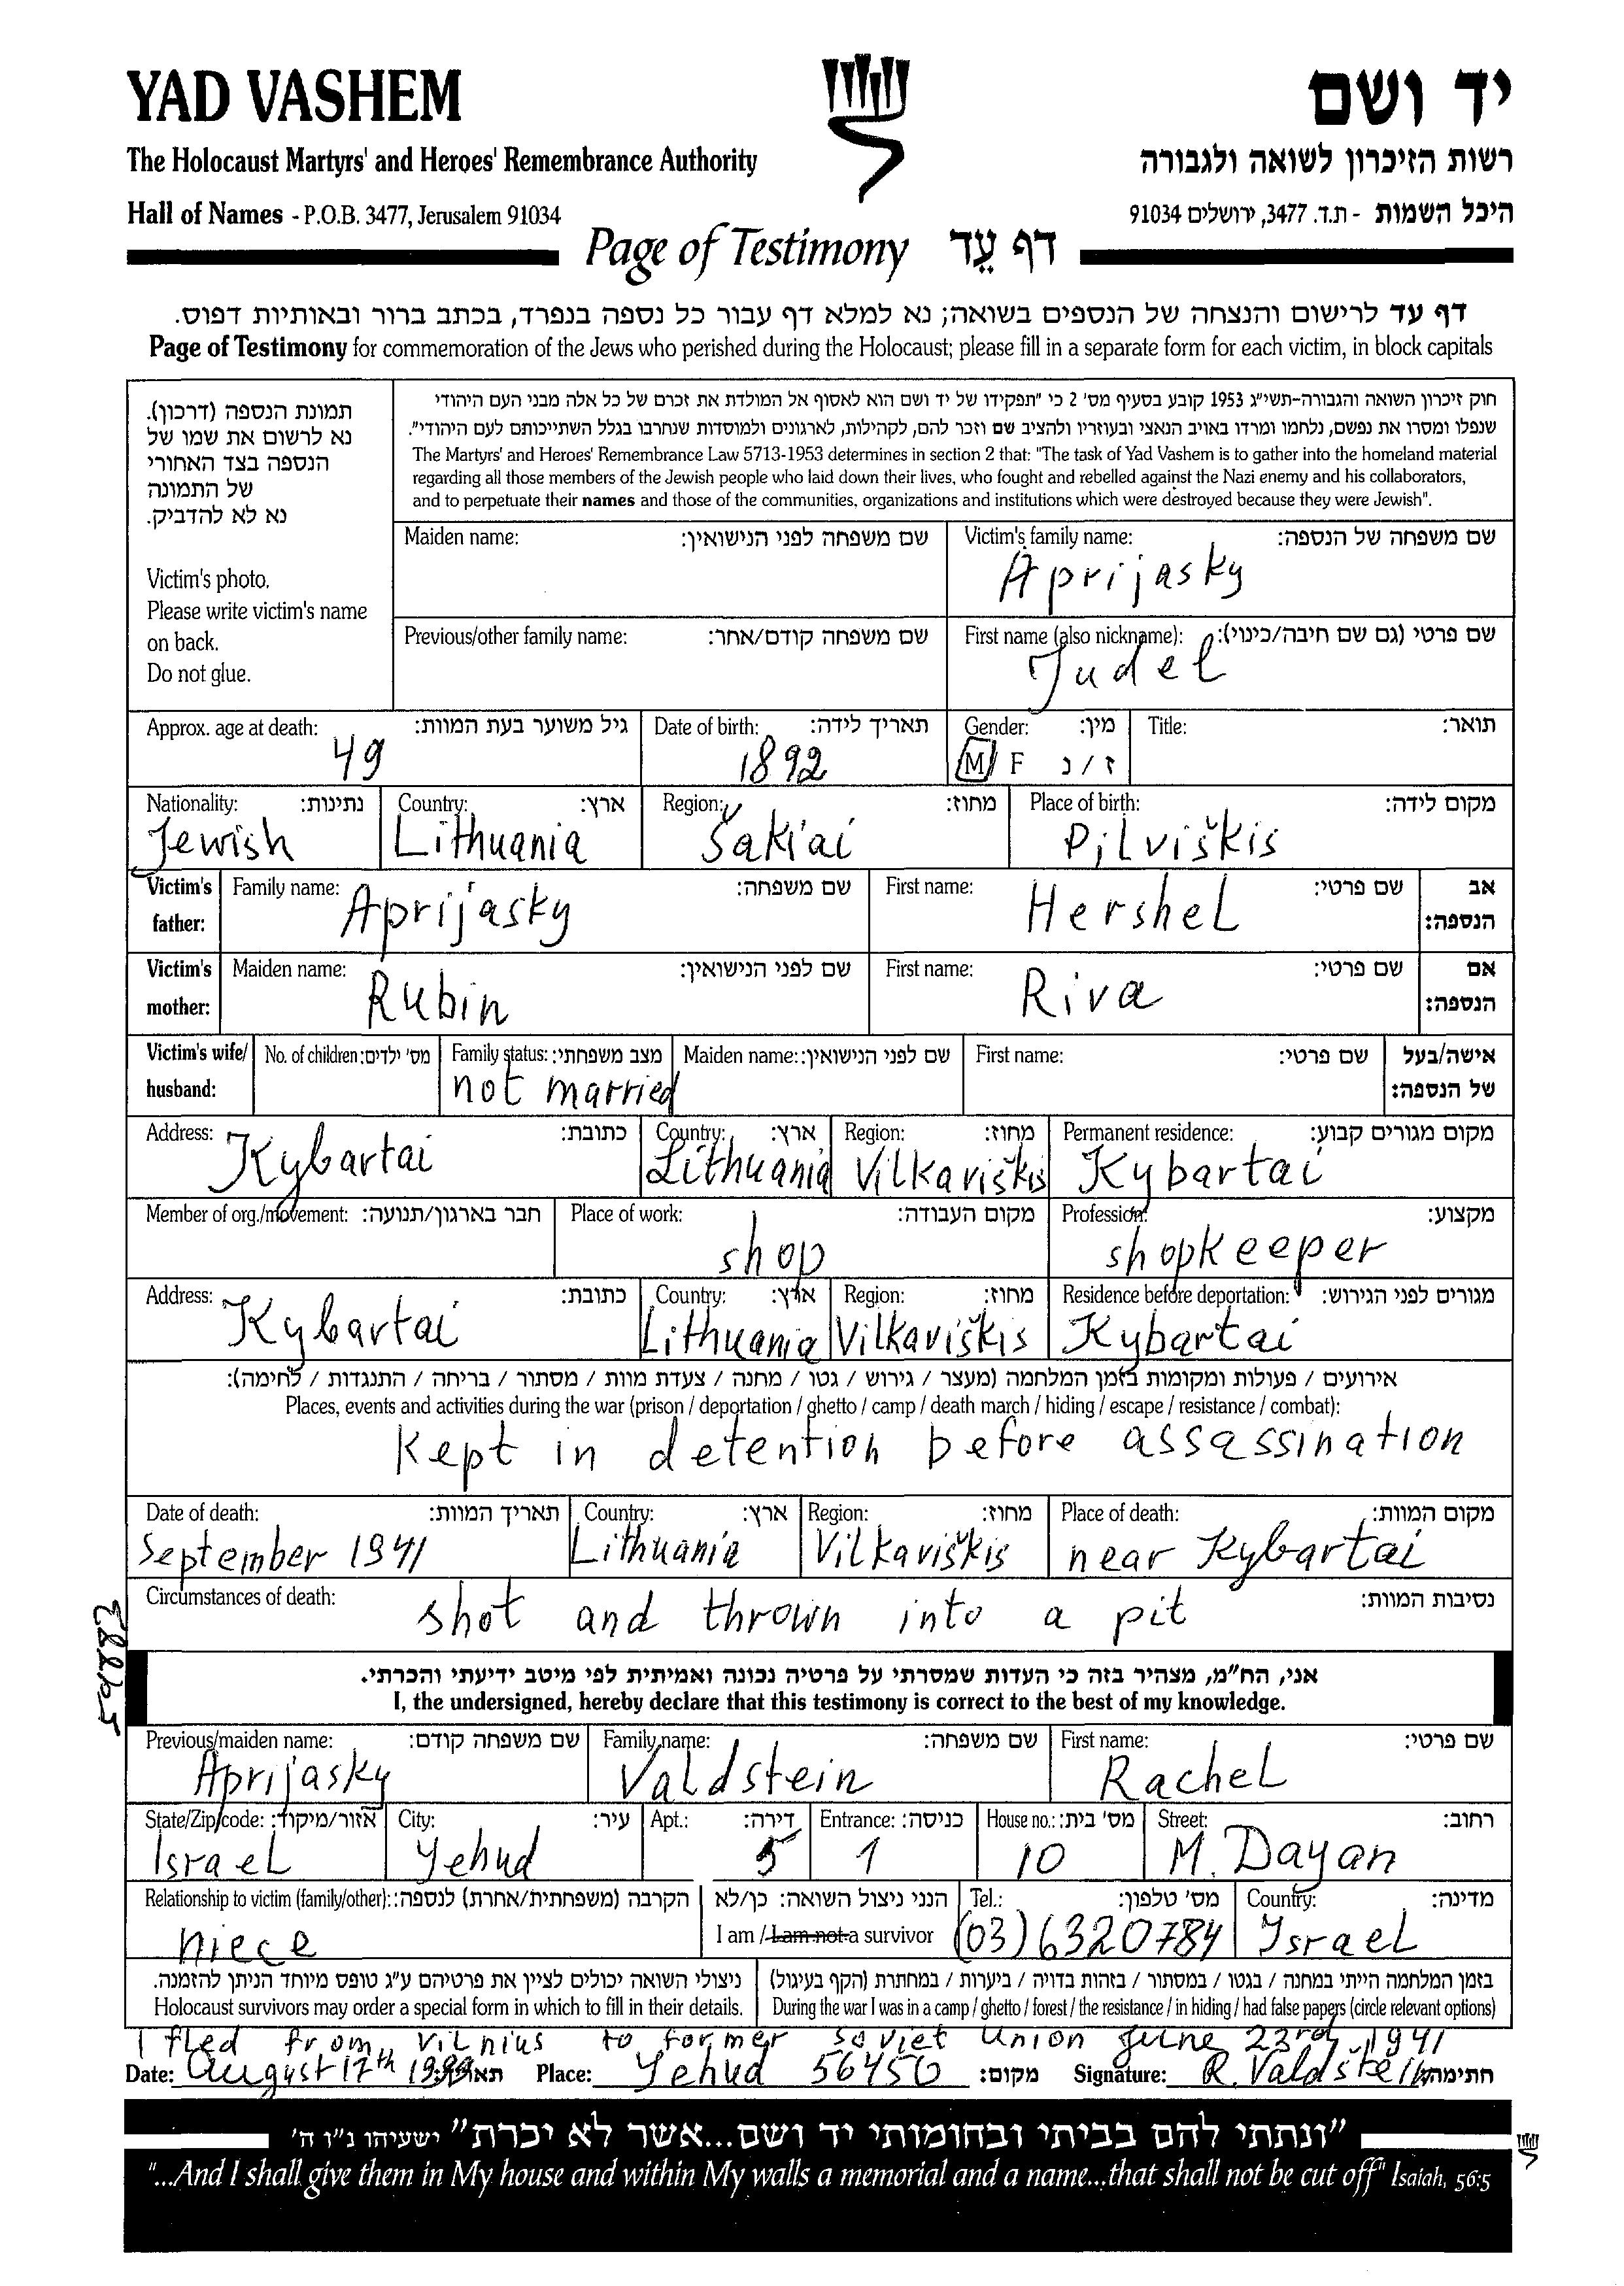 YAD VASHEM
יד ושם
The Holocaust Martyrs' and Heroes' Remembrance Authority
רשות הזיכרון לשואה ולגבורה
Hall of Names - P.O.B. 3477, Jerusalem 91034
היכל השמות - ת.ד. 3477, ירושלים 91034
Page of Testimony דף עֵד
דף עד לרישום והנצחה של הנספים בשואה; נא למלא דף עבור כל נספה בנפרד, בכתב ברור ובאותיות דפוס.
Page of Testimony for commemoration of the Jews who perished during the Holocaust; please fill in a separate form for each victim, in block capitals
תמונת הנספה (דרכון).
נא לרשום את שמו של
הנספה בצד האחורי
של התמונה
נא לא להדביק.
Victim's photo.
Please write victim's name
on back.
Do not glue.
חוק זיכרון השואה והגבורה-תשי"ג 1953 קובע בסעיף מס' 2 כי "תפקידו של יד ושם הוא לאסוף אל המולדת את זכרם של כל אלה מבני העם היהודי
שנפלו ומסרו את נפשם, נלחמו ומרדו באויב הנאצי ובעוזריו ולהציב שם וזכר להם, לקהילות, לארגונים ולמוסדות שנחרבו בגלל השתייכותם לעם היהודי".
The Martyrs' and Heroes' Remembrance Law 5713-1953 determines in section 2 that: "The task of Yad Vashem is to gather into the homeland material
regarding all those members of the Jewish people who laid down their lives, who fought and rebelled against the Nazi enemy and his collaborators,
and to perpetuate their names and those of the communities, organizations and institutions which were destroyed because they were Jewish".
Maiden name: שם משפחה לפני הנישואין:
Victim's family name: שם משפחה של הנספה:
Aprijasky
Previous/other family name: שם משפחה קודם/אחר:
First name (also nickname): שם פרטי (גם שם חיבה/כינוי):
Judel
Approx. age at death: גיל משוער בעת המוות:
49
Date of birth: תאריך לידה:
1892
Gender: מין:
M F ז / נ
Title: תואר:
Nationality: נתינות:
Jewish
Country: ארץ:
Lithuania
Region: מחוז:
Šakiai
Place of birth: מקום לידה:
Pilviškis
Victim's father: Family name: שם משפחה:
Aprijasky
First name: שם פרטי: אב הנספה:
Hershel
Victim's mother: Maiden name: שם לפני הנישואין:
Rubin
First name: שם פרטי: אם הנספה:
Riva
Victim's wife/ husband: No. of children: מס' ילדים:
Family status: מצב משפחתי:
not married
Maiden name: שם לפני הנישואין:
First name: שם פרטי: אישה/בעל של הנספה:
Address: כתובת:
Kybartai
Country: ארץ:
Lithuania
Region: מחוז:
Vilkaviškis
Permanent residence: מקום מגורים קבוע:
Kybartai
Member of org./movement: חבר בארגון/תנועה:
Place of work: מקום העבודה:
shop
Profession: מקצוע:
shopkeeper
Address: כתובת:
Kybartai
Country: ארץ:
Lithuania
Region: מחוז:
Vilkaviškis
Residence before deportation: מגורים לפני הגירוש:
Kybartai
אירועים / פעולות ומקומות בזמן המלחמה (מעצר / גירוש / גטו / מחנה / צעדת מוות / מסתור / בריחה / התנגדות / לחימה):
Places, events and activities during the war (prison / deportation / ghetto / camp / death march / hiding / escape / resistance / combat):
Kept in detention before assassination
Date of death: תאריך המוות:
September 1941
Country: ארץ:
Lithuania
Region: מחוז:
Vilkaviškis
Place of death: מקום המוות:
near Kybartai
Circumstances of death: נסיבות המוות:
shot and thrown into a pit
אני, הח"מ, מצהיר בזה כי העדות שמסרתי על פרטיה נכונה ואמיתית לפי מיטב ידיעתי והכרתי.
I, the undersigned, hereby declare that this testimony is correct to the best of my knowledge.
Previous/maiden name: שם משפחה קודם:
Aprijasky
Family name: שם משפחה:
Valdstein
First name: שם פרטי:
Rachel
State/Zip/code: אזור/מיקוד:
Israel
City: עיר:
Yehud
Apt.: דירה:
5
Entrance: כניסה:
1
House no.: מס' בית:
10
Street: רחוב:
M. Dayan
Relationship to victim (family/other): הקרבה (משפחתית/אחרת) לנספה:
niece
הנני ניצול השואה: כן/לא
I am / I am not a survivor
Tel.: מס' טלפון:
(03) 6320784
Country: מדינה:
Israel
ניצולי השואה יכולים לציין את פרטיהם ע"ג טופס מיוחד הניתן להזמנה.
Holocaust survivors may order a special form in which to fill in their details.
בזמן המלחמה הייתי במחנה / בגטו / במסתור / בזהות בדויה / ביערות / במחתרת (הקף בעיגול)
During the war I was in a camp / ghetto / forest / the resistance / in hiding / had false papers (circle relevant options)
I fled from Vilnius to former Soviet Union June 23rd, 1941
Date: August 17th 1999 תאריך: Place: Yehud 56450 מקום: Signature: R. Valdštein חתימה:
"ונתתי להם בביתי ובחומותי יד ושם...אשר לא יכרת" ישעיהו נ"ו ה'
"...And I shall give them in My house and within My walls a memorial and a name...that shall not be cut off" Isaiah, 56:5